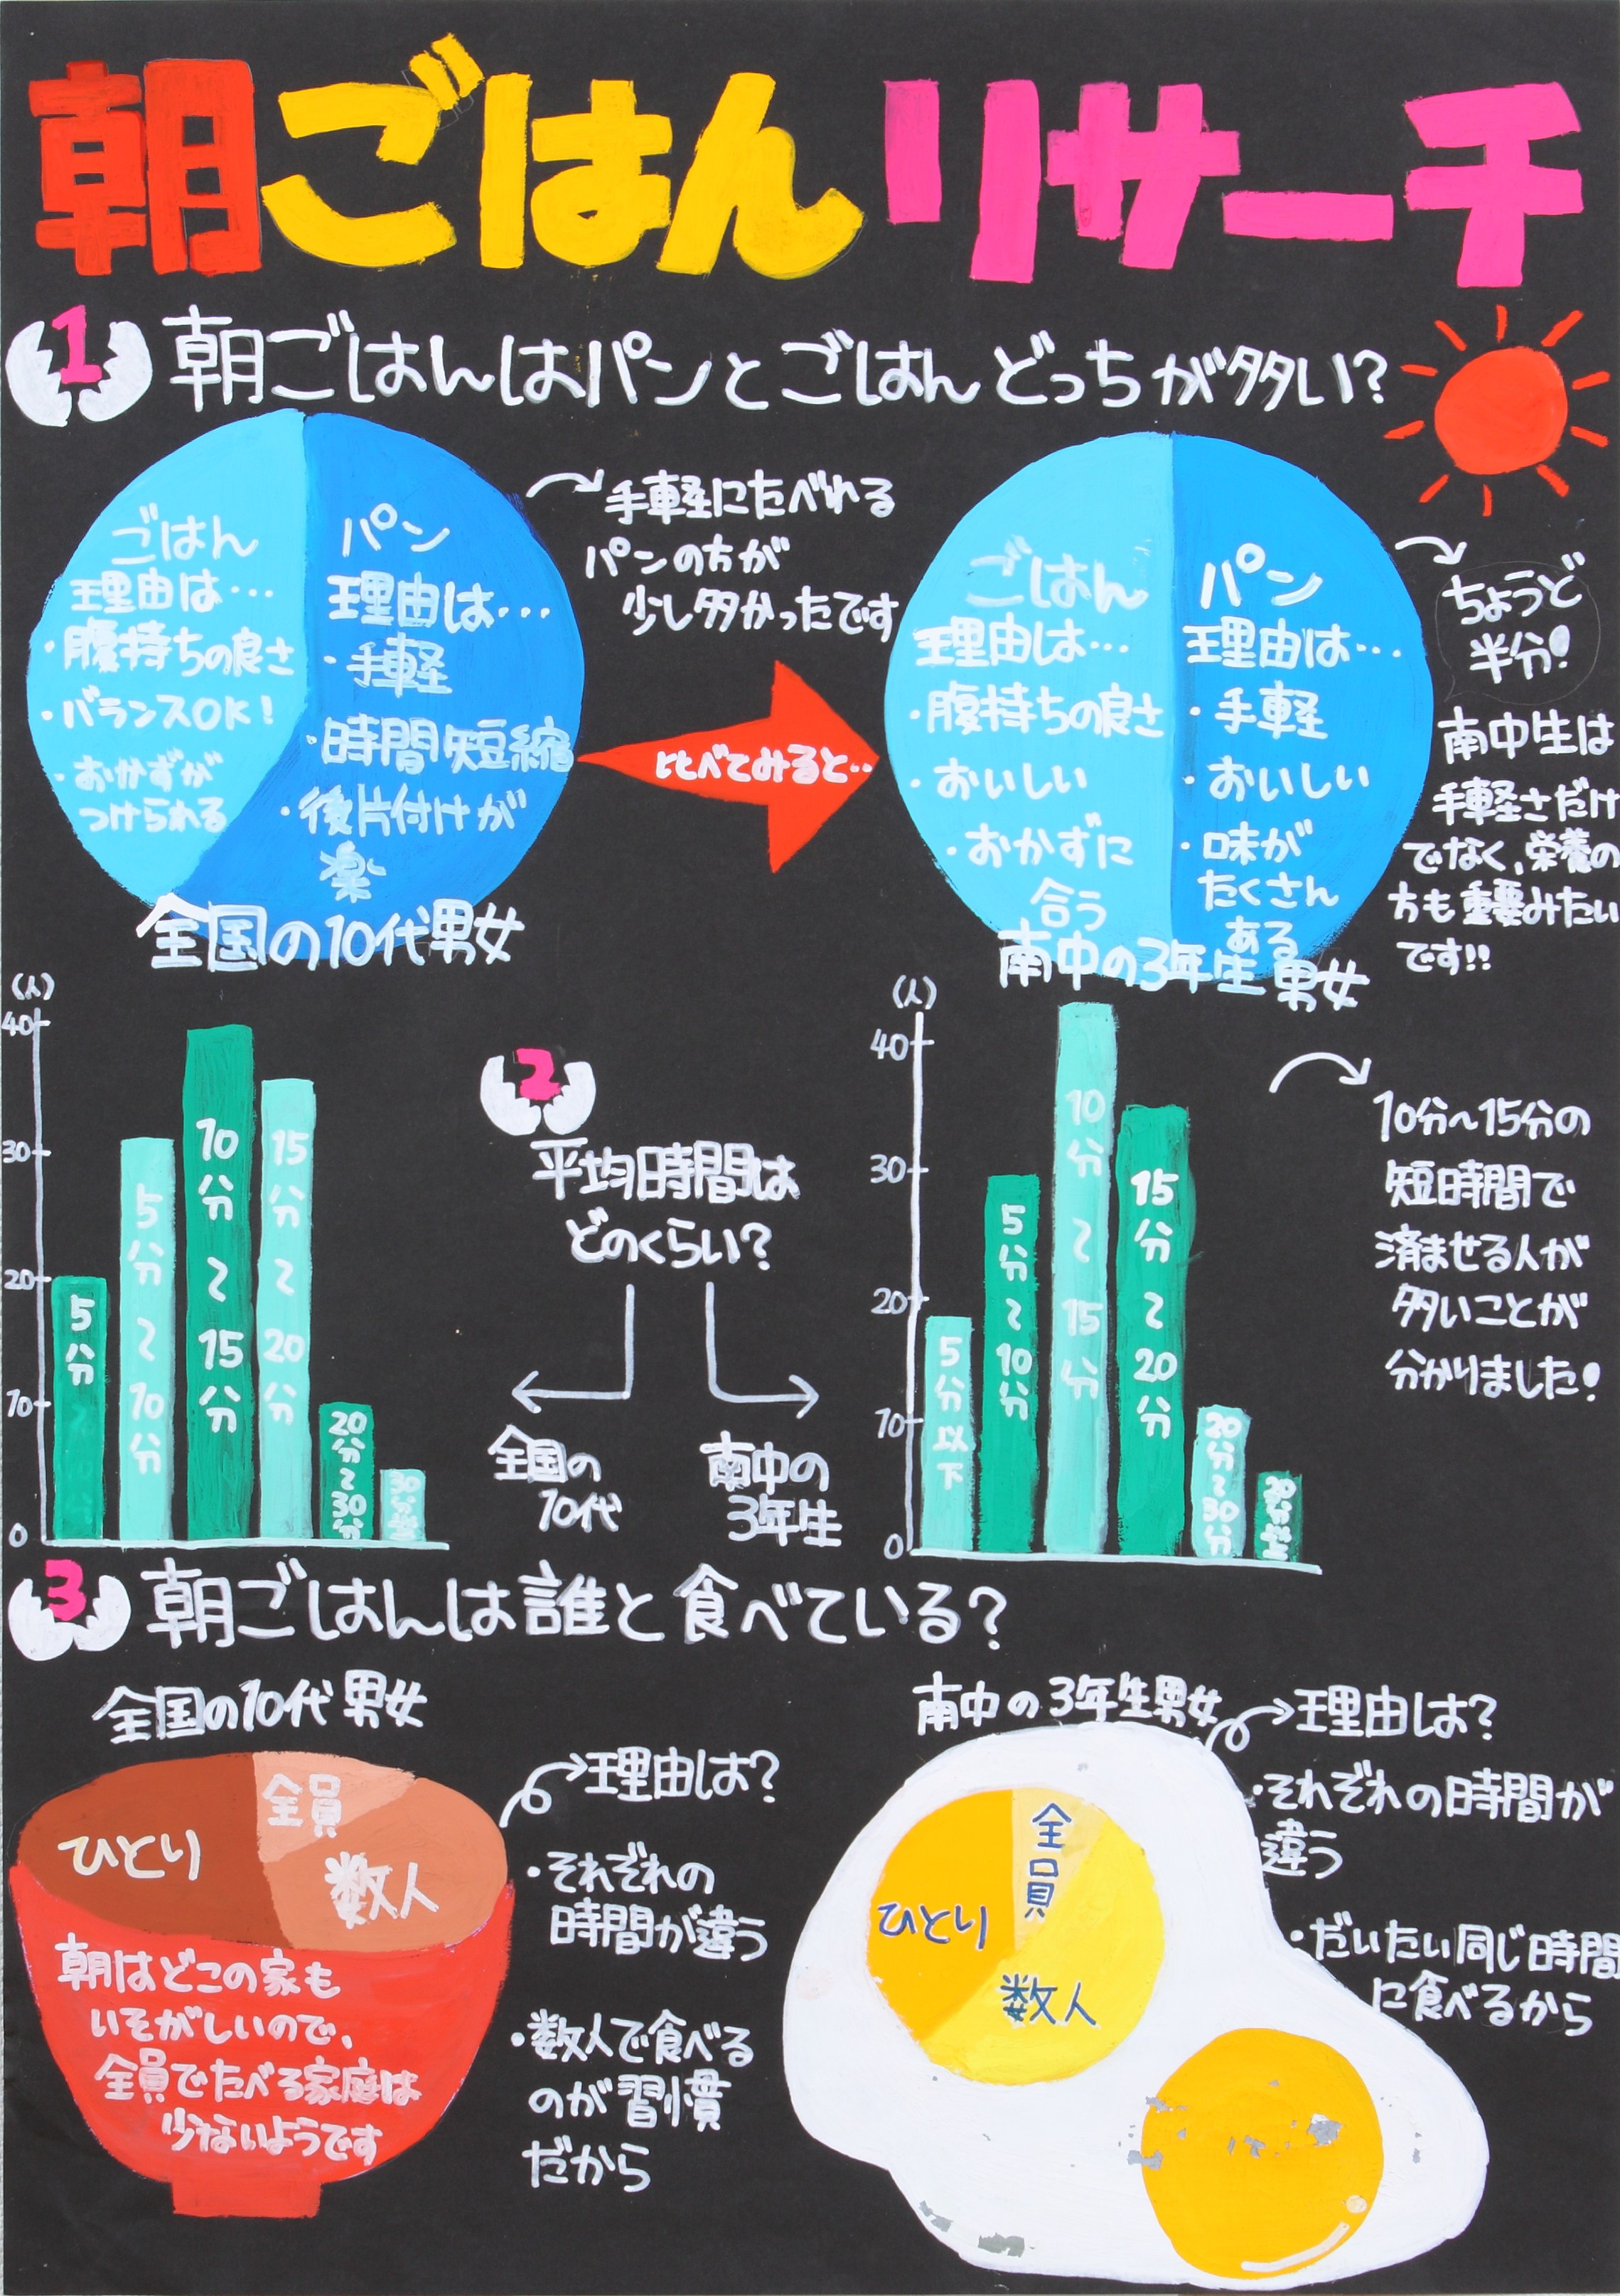 朝ごはんリサーチ
1 朝ごはんはパンとごはんどっちが多い?
ごはん
理由は…
・腹持ちの良さ
・バランスOK!
・おかずが
つけられる
パン
理由は…
・手軽
・時間短縮
・後片付けが
楽
全国の10代男女
手軽にたべれる
パンの方が
少し多かったです
比べてみると‥
ごはん
理由は…
・腹持ちの良さ
・おいしい
・おかずに
合う
パン
理由は…
・手軽
・おいしい
・味が
たくさん
ある
南中の3年生男女
ちょうど
半分!
南中生は
手軽さだけ
でなく、栄養の
方も重要みたい
です!!
2
平均時間は
どのくらい?
全国の
10代
南中の
3年生
(人)
40
30
20
10
0
5分
5分~10分
10分~15分
15分~20分
20分~30分
(人)
40
30
20
10
0
5分以下
5分~10分
10分~15分
15分~20分
20分~30分
10分~15分の
短時間で
済ませる人が
多いことが
分かりました!
3 朝ごはんは誰と食べている?
全国の10代男女
ひとり
全員
数人
朝はどこの家も
いそがしいので、
全員でたべる家庭は
少ないようです
理由は?
・それぞれの
時間が違う
・数人で食べる
のが習慣
だから
南中の3年生男女
ひとり
全員
数人
理由は?
・それぞれの時間が
違う
・だいたい同じ時間
に食べるから